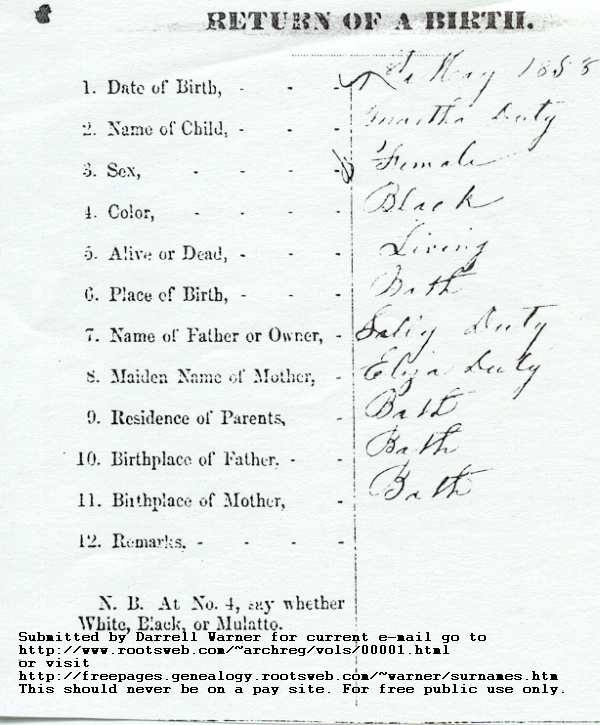 RETURN OF A BIRTH.
1. Date of Birth, - - - May 1858
2. Name of Child, - - - Duty
3. Sex, - - - - Female
4. Color, - - - - Black
5. Alive or Dead, - - - Living
6. Place of Birth, - - - Bath
7. Name of Father or Owner, - Duty
8. Maiden Name of Mother, - Eliza Duty
9. Residence of Parents, - Bath
10. Birthplace of Father. - - Bath
11. Birthplace of Mother, - Bath
12. Remarks, - - - -
N. B. At No. 4, say whether
White, Black, or Mulatto.
Submitted by Darrell Warner for current e-mail go to
http://www.rootsweb.com/~archreg/vols/00001.html
or visit
http://freepages.genealogy.rootsweb.com/~warner/surnames.htm
This should never be on a pay site. For free public use only.